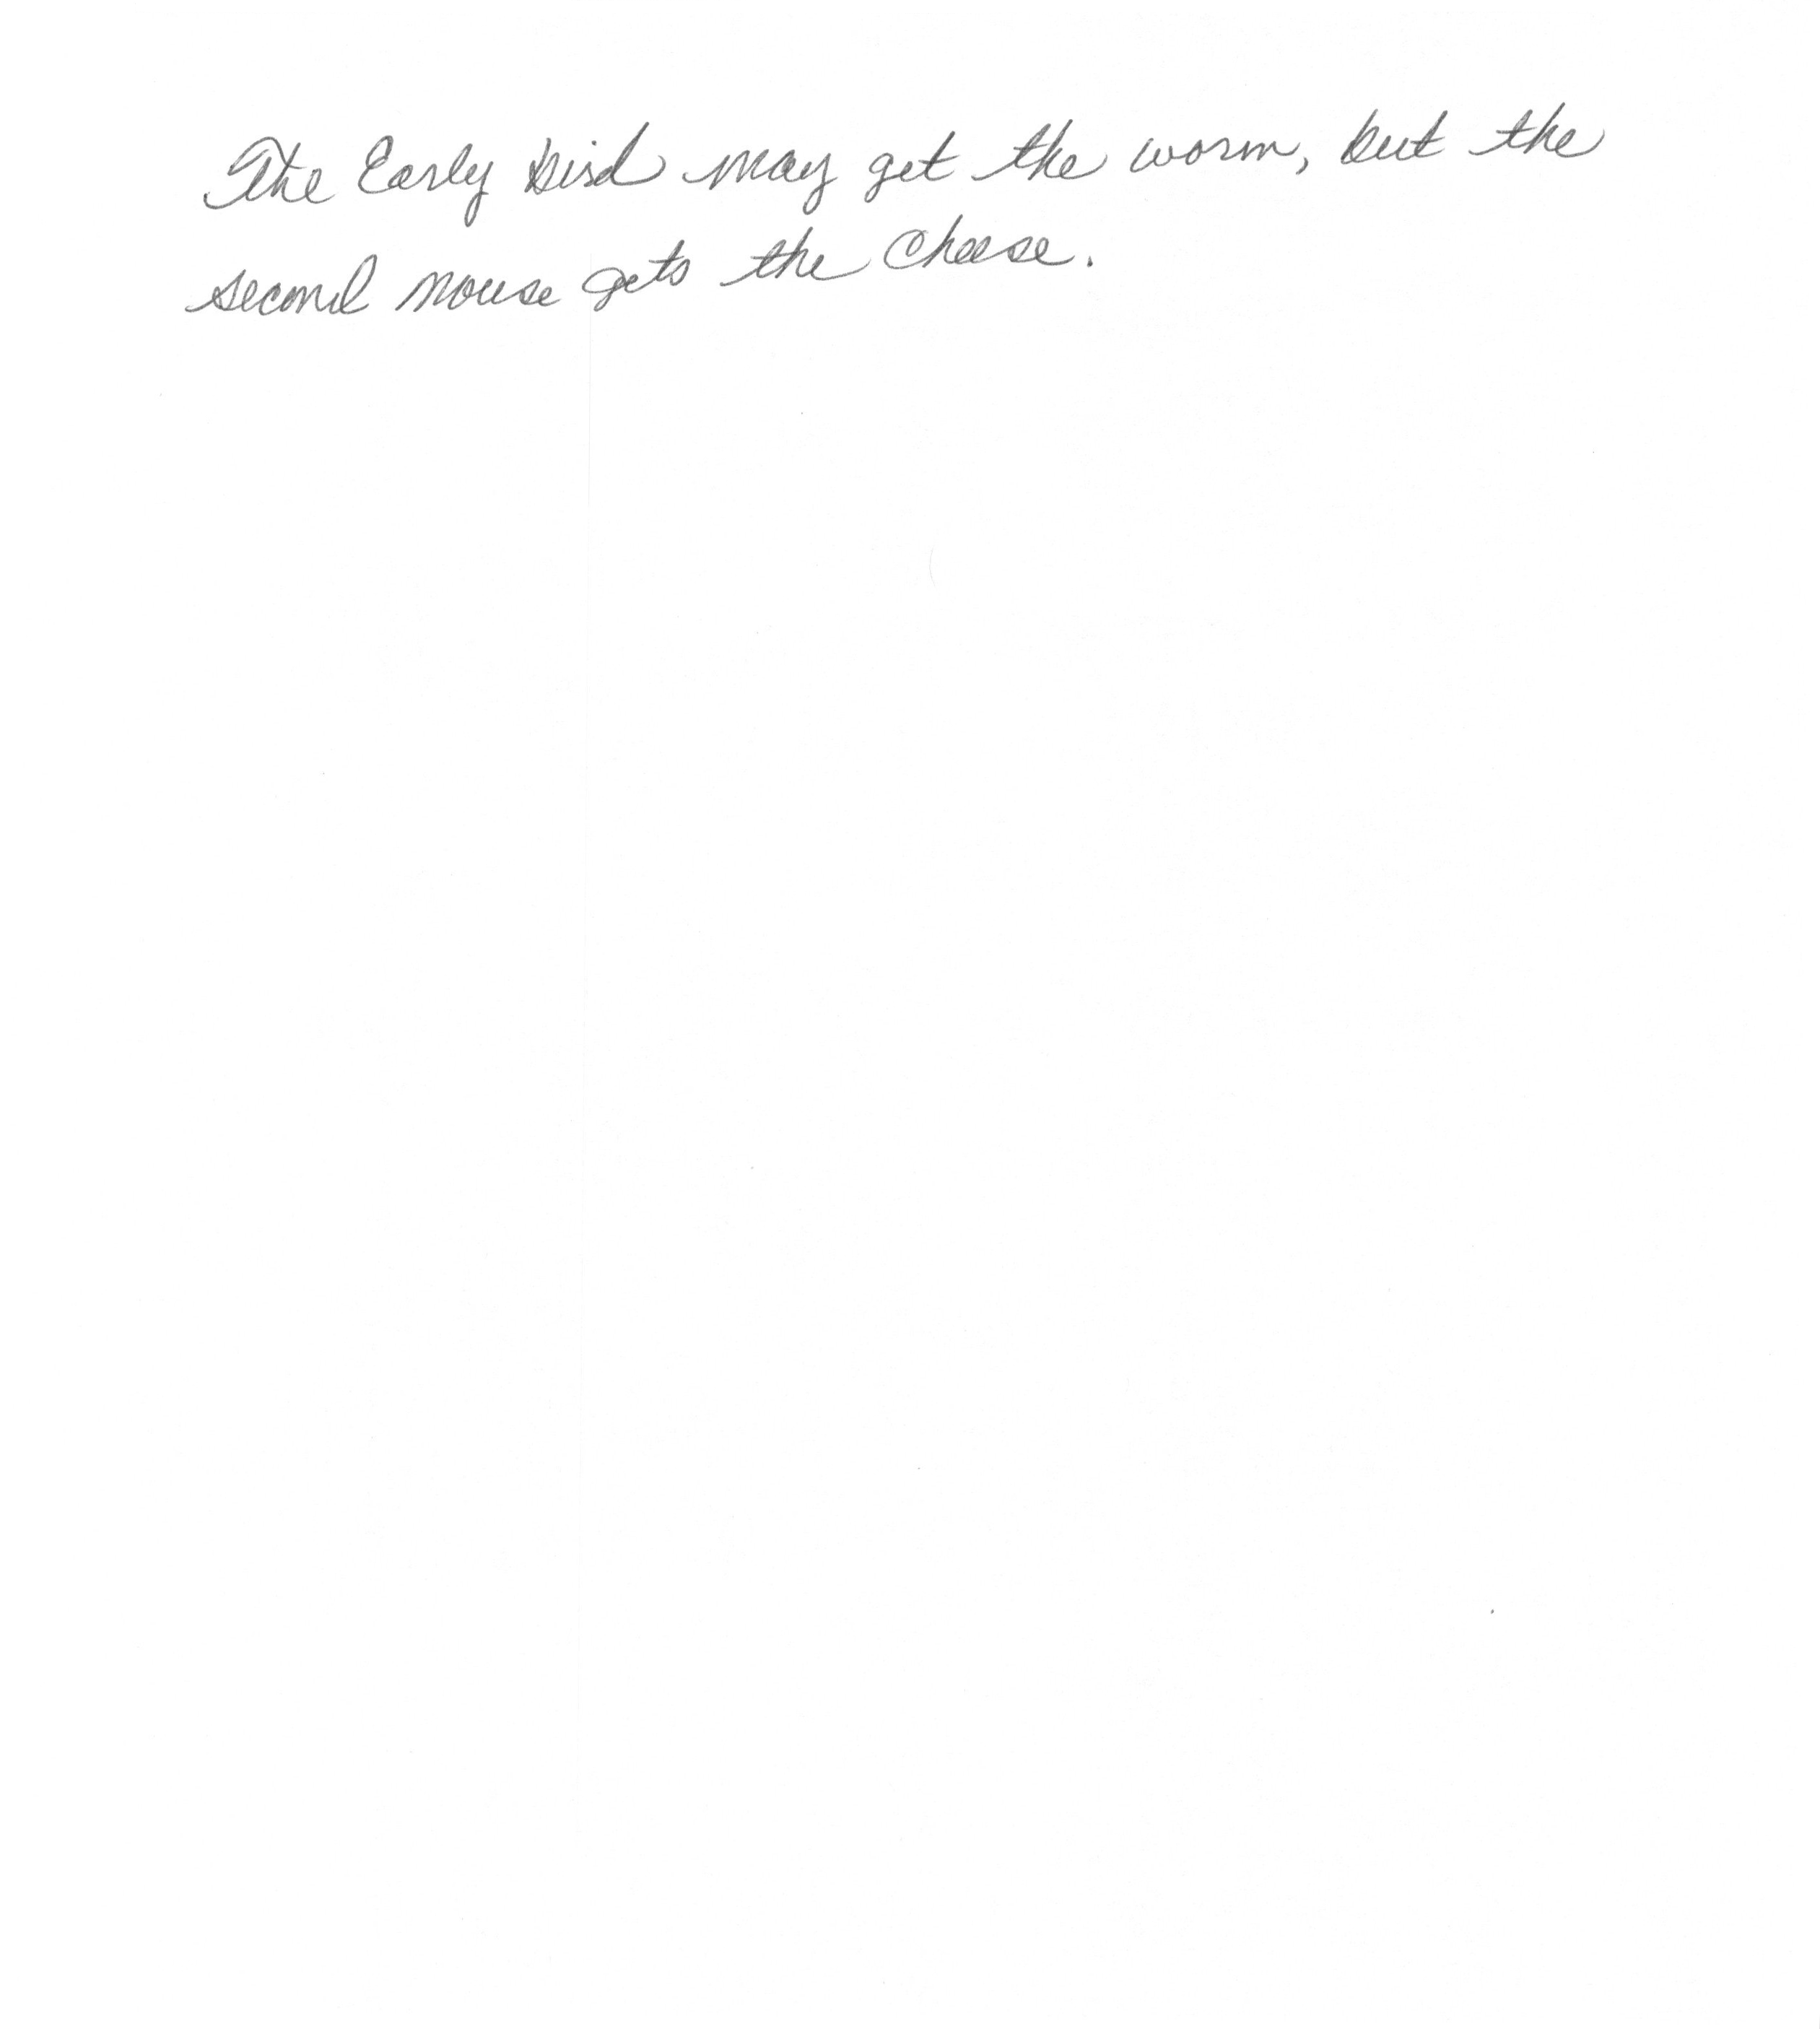 The Early bird may get the worm, but the
second mouse gets the Cheese.